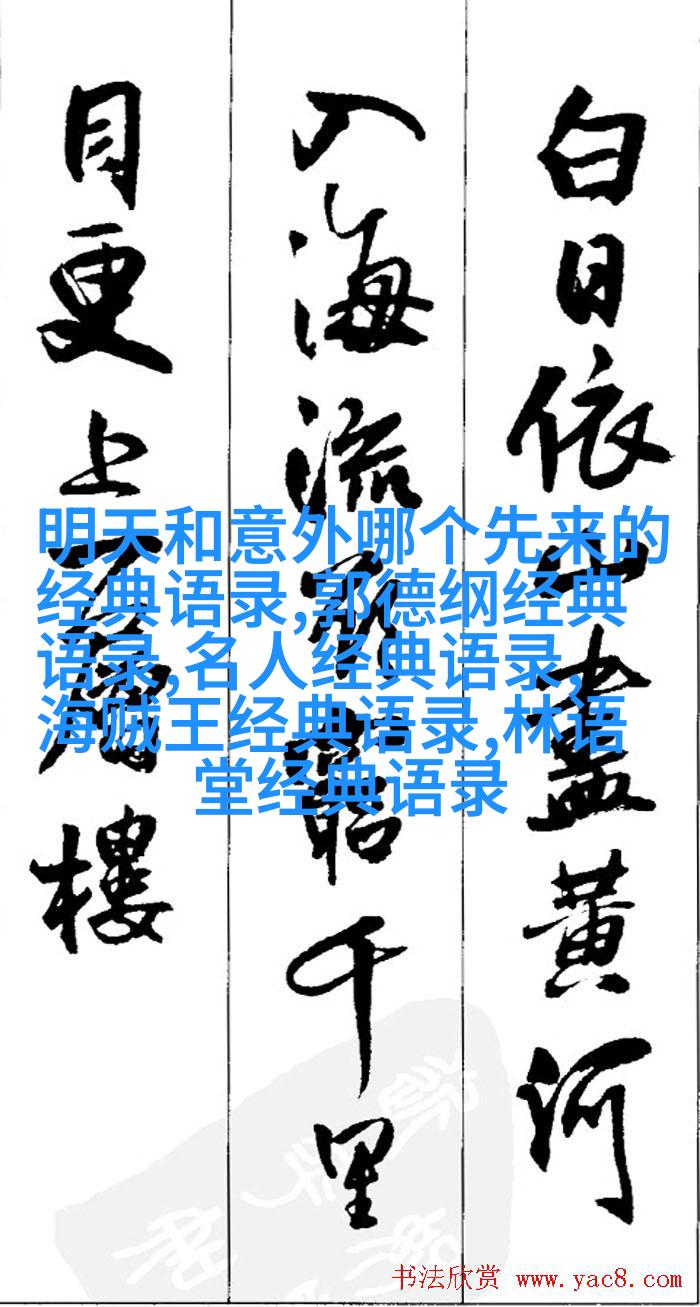 白日依山盡黄河
入海流欲窮千里
目更上一層樓
明天和意外哪个先来的
经典语录,郭德纲经典
语录,名人经典语录,
海贼王经典语录,林语
堂经典语录
书法欣赏 www.yac8.com